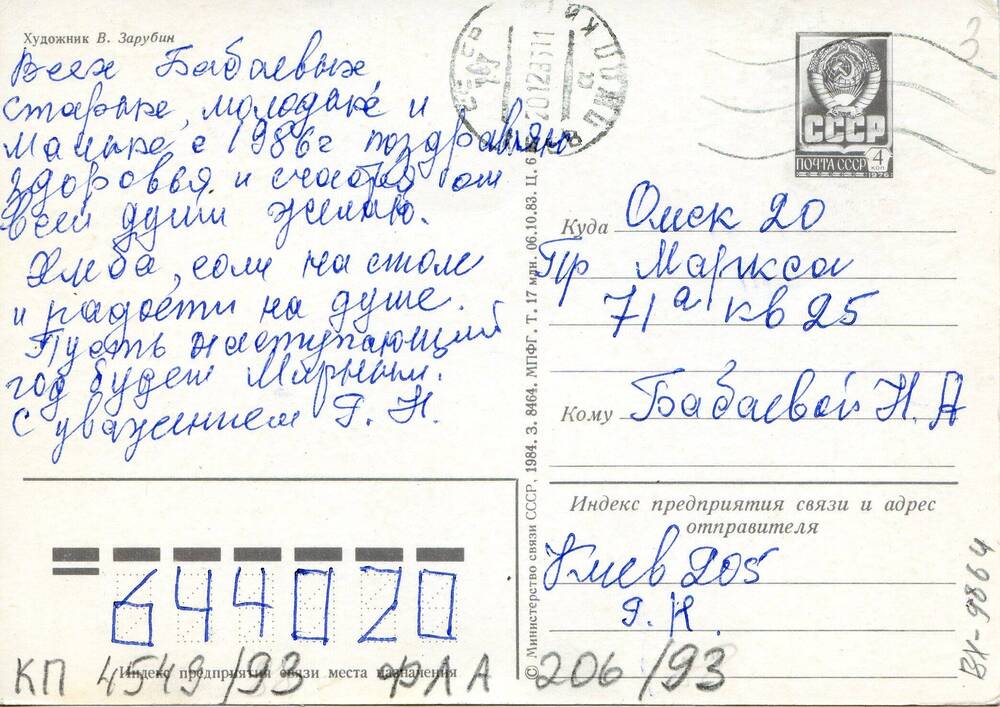 Художник В. Зарубин
Всех Бабаевых
старых, молодых и
Малых с 1986г поздравляю
здоровья и счастья от
всей души желаю.
Хлеба, соли на столе
и радости на душе.
Пусть наступающий
год будет Мирным.
С уважением Г. Н.
СССР
ПОЧТА СССР 4 КОП
1976
3
Куда Омск 20
Пр Маркса
71а кв 25
Кому Бабаевой Н. А
Индекс предприятия связи и адрес
отправителя
Киев 205
Г. Н.
644020
Индекс предприятия связи места назначения
КП 4549/93 ФЛА 206/93
© Министерство связи СССР, 1984. З. 8464. МПФГ. Т. 17 млн. 06.10.83. Ц. 6
ВХ-9864